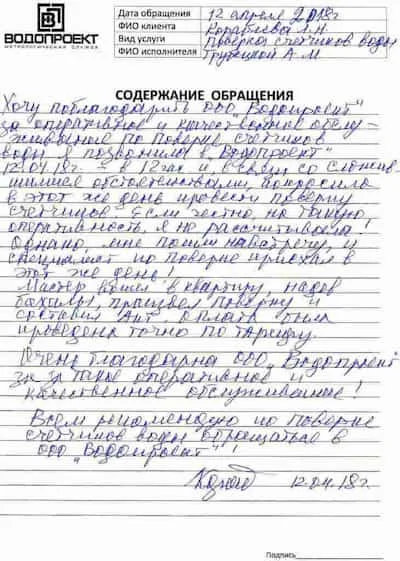 ВОДОПРОЕКТ
МЕТРОЛОГИЧЕСКАЯ СЛУЖБА
Дата обращения 12 апреля 2018г
ФИО клиента Кораблева Л.Н.
Вид услуги Поверка счетчиков воды
ФИО исполнителя Трубецкой А.М.
СОДЕРЖАНИЕ ОБРАЩЕНИЯ
Хочу поблагодарить ООО „Водопроект"
за оперативное и качественное обслу-
живание по поверке счетчиков
воды. Я позвонила в „Водопроект"
12.04.18г. - в 12 час и, в связи со сложив-
шимися обстоятельствами, попросила
в этот же день провести поверку
счетчиков. Если честно, на такую
оперативность, я не рассчитывала!
Однако, мне пошли навстречу, и
специалист по поверке приехал в
этот же день!
Мастер вошел в квартиру, надев
бахилы, произвел поверку и
составил Акт. Оплата была
проведена точно по тарифу.
Очень благодарна ООО „Водопроект"
за такое оперативное и
качественное обслуживание!
Всем рекомендую по поверке
счетчиков воды обращаться в
ООО „Водопроект"!
12.04.18г.
Подпись